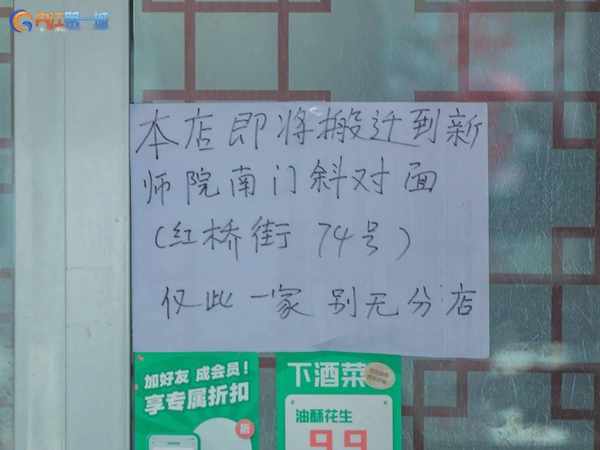 内江第一城
本店即将搬迁到新
师院南门斜对面
(红桥街 74号)
仅此一家 别无分店
加好友 成会员!
享专属折扣
下酒菜
油酥花生
9.9